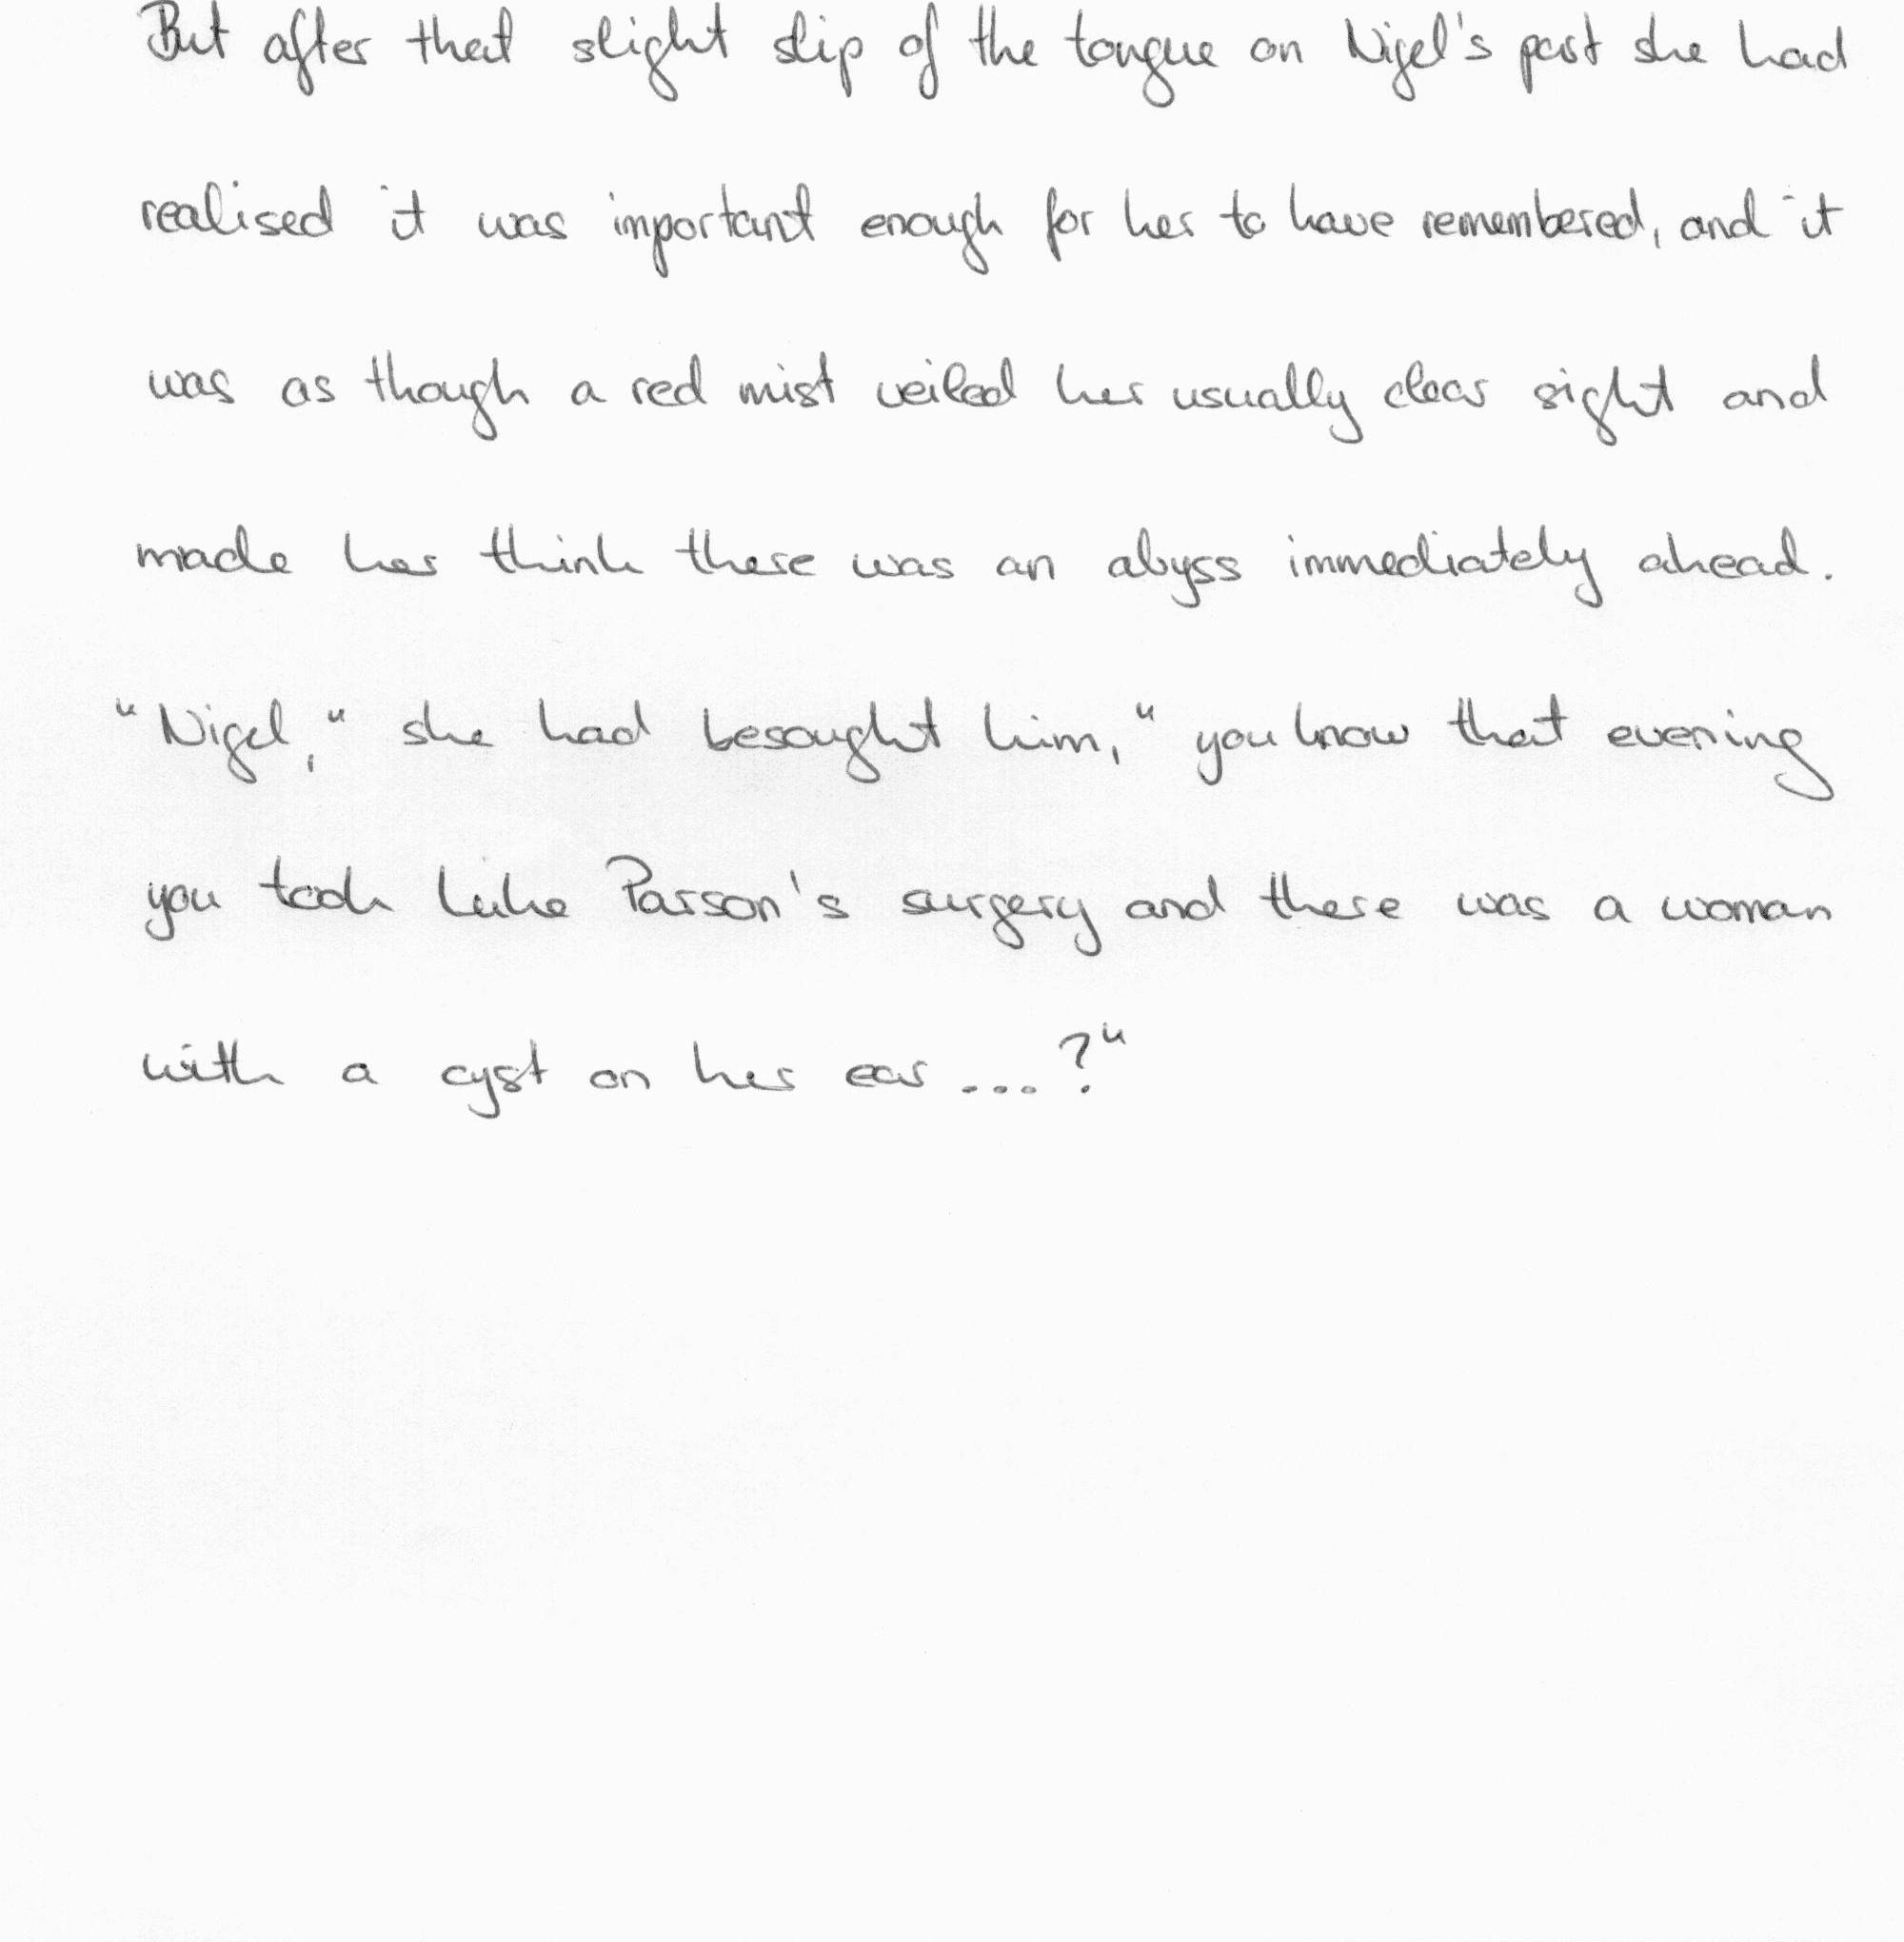 But after that slight slip of the tongue on Nigel's part she had
realised it was important enough for her to have remembered, and it
was as though a red mist veiled her usually clear sight and
made her think there was an abyss immediately ahead.
"Nigel," she had besought him, "you know that evening
you took Luke Parson's surgery and there was a woman
with a cyst on her ear...?"